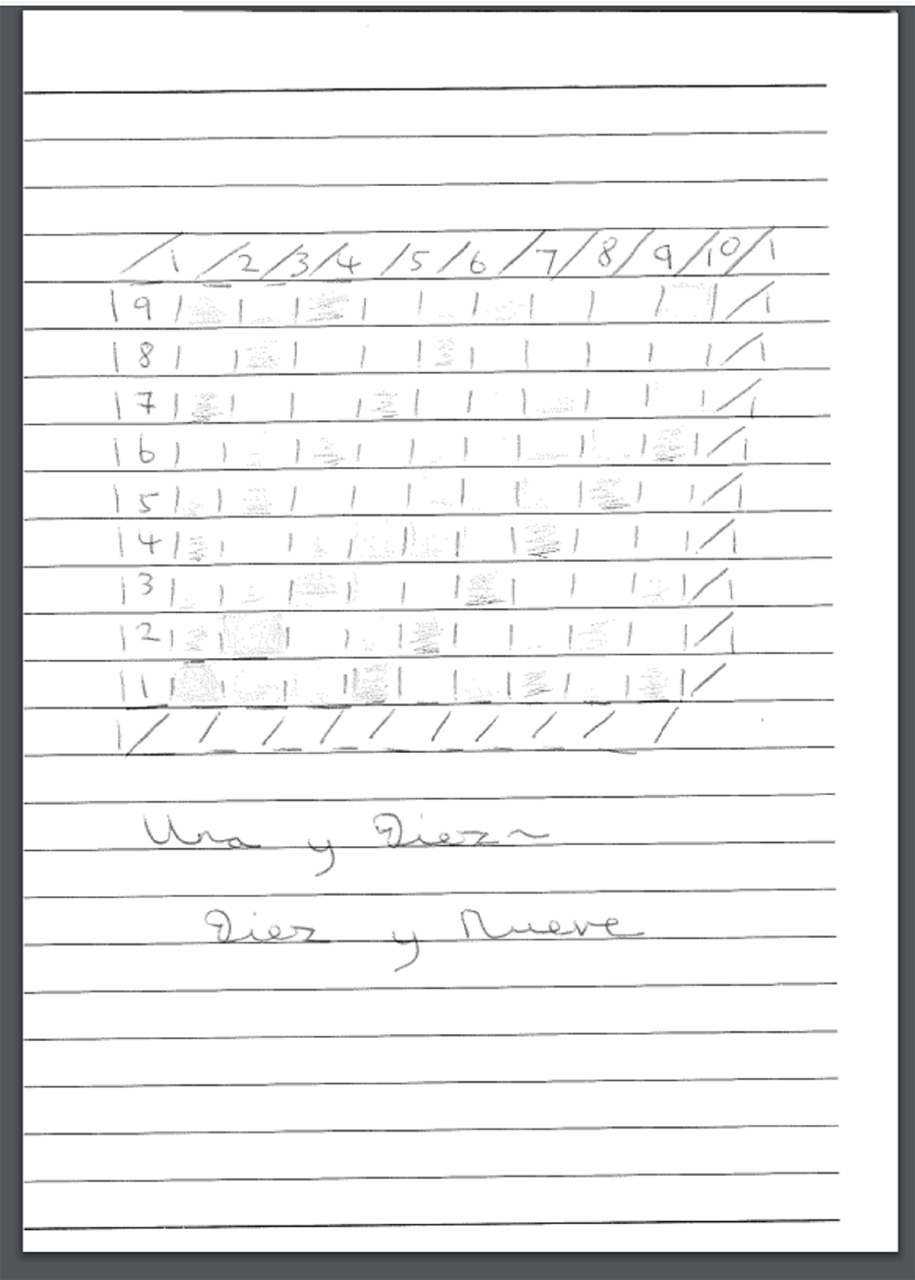 /1/2/3/4/5/6/7/8/9/10/1
|9| | | | | | | | | |/1
|8| | | | | | | | | |/1
|7| | | | | | | | | |/1
|6| | | | | | | | | |/1
|5| | | | | | | | | |/1
|4| | | | | | | | | |/1
|3| | | | | | | | | |/1
|2| | | | | | | | | |/1
|1| | | | | | | | | |/
|/ / / / / / / / / /
Una y Diez~
Diez y Nueve